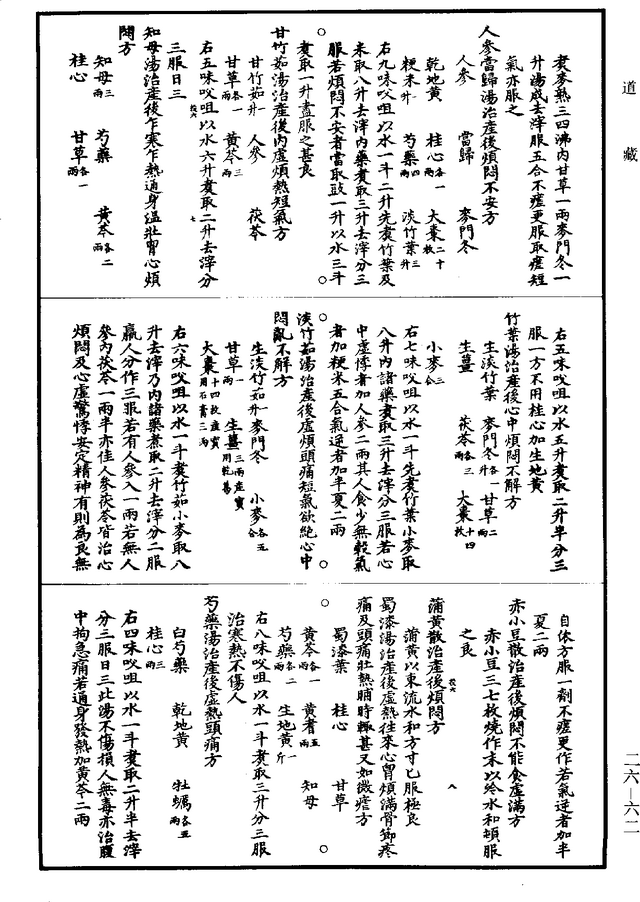 道藏
煑麥熟三四沸內甘草一兩麥門冬一
升湯成去滓服五合不瘥更服取瘥短
氣亦服之
人參當歸湯治產後煩悶不安方
人參　當歸　麥門冬
乾地黃　桂心各一兩　大棗二十枚
粳米一升　芍藥四兩　淡竹葉三升
右九味㕮咀以水一斗二升先煑竹葉及
米取八升去滓內藥煑取三升去滓分三
服若煩悶不安者當取豉一升以水三斗
煑取一升盡服之甚良
甘竹茹湯治產後內虛煩熱短氣方
甘竹茹一升　人參　茯苓
甘草各一兩　黃芩三兩
右五味㕮咀以水六升煑取二升去滓分
三服日三
知母湯治產後乍寒乍熱通身溫壯胷心煩
悶方
知母三兩　芍藥　黃芩各二兩
桂心　甘草各一兩
右五味㕮咀以水五升煑取二升半分三
服一方不用桂心加生地黃
竹葉湯治產後心中煩悶不解方
生淡竹葉　麥門冬各一升　甘草二兩
生薑　茯苓各三兩　大棗十四枚
小麥五合
右七味㕮咀以水一斗先煑竹葉小麥取
八升內諸藥煑取三升去滓分三服若心
中虛悸者加人參二兩其人食少無穀氣
者加粳米五合氣逆者加半夏二兩
淡竹茹湯治產後虛煩頭痛短氣欲絕心中
悶亂不解方
生淡竹茹一升　麥門冬　小麥各五合
甘草一兩　生薑三兩產寶用乾葛
大棗十四枚產寶用石膏三兩
右六味㕮咀以水一斗煑竹茹小麥取八
升去滓乃內諸藥煮取二升去滓分二服
羸人分作三服若有人參入一兩若無人
參內茯苓一兩半亦佳人參茯苓皆治心
煩悶及心虛驚悸安定精神有則為良無
自依方服一劑不瘥更作若氣逆者加半
夏二兩
赤小豆散治產後煩悶不能食虛滿方
赤小豆三七枚燒作末以冷水和頓服
之良
蒲黃散治產後煩悶方
蒲黃以東流水和方寸匕服極良
蜀漆湯治產後虛熱往來心胷煩滿骨節疼
痛及頭痛壯熱晡時輒甚又如微瘧方
蜀漆葉　桂心　甘草
黃芩各一兩　黃耆五兩　知母
芍藥各二兩　生地黃一斤
右八味㕮咀以水一斗煑取三升分三服
治寒熱不傷人
芍藥湯治產後虛熱頭痛方
白芍藥　乾地黃　牡蠣各五兩
桂心三兩
右四味㕮咀以水一斗煑取二升半去滓
分三服日三此湯不傷損人無毒亦治腹
中拘急痛若通身發熱加黃芩二兩
二六—六二